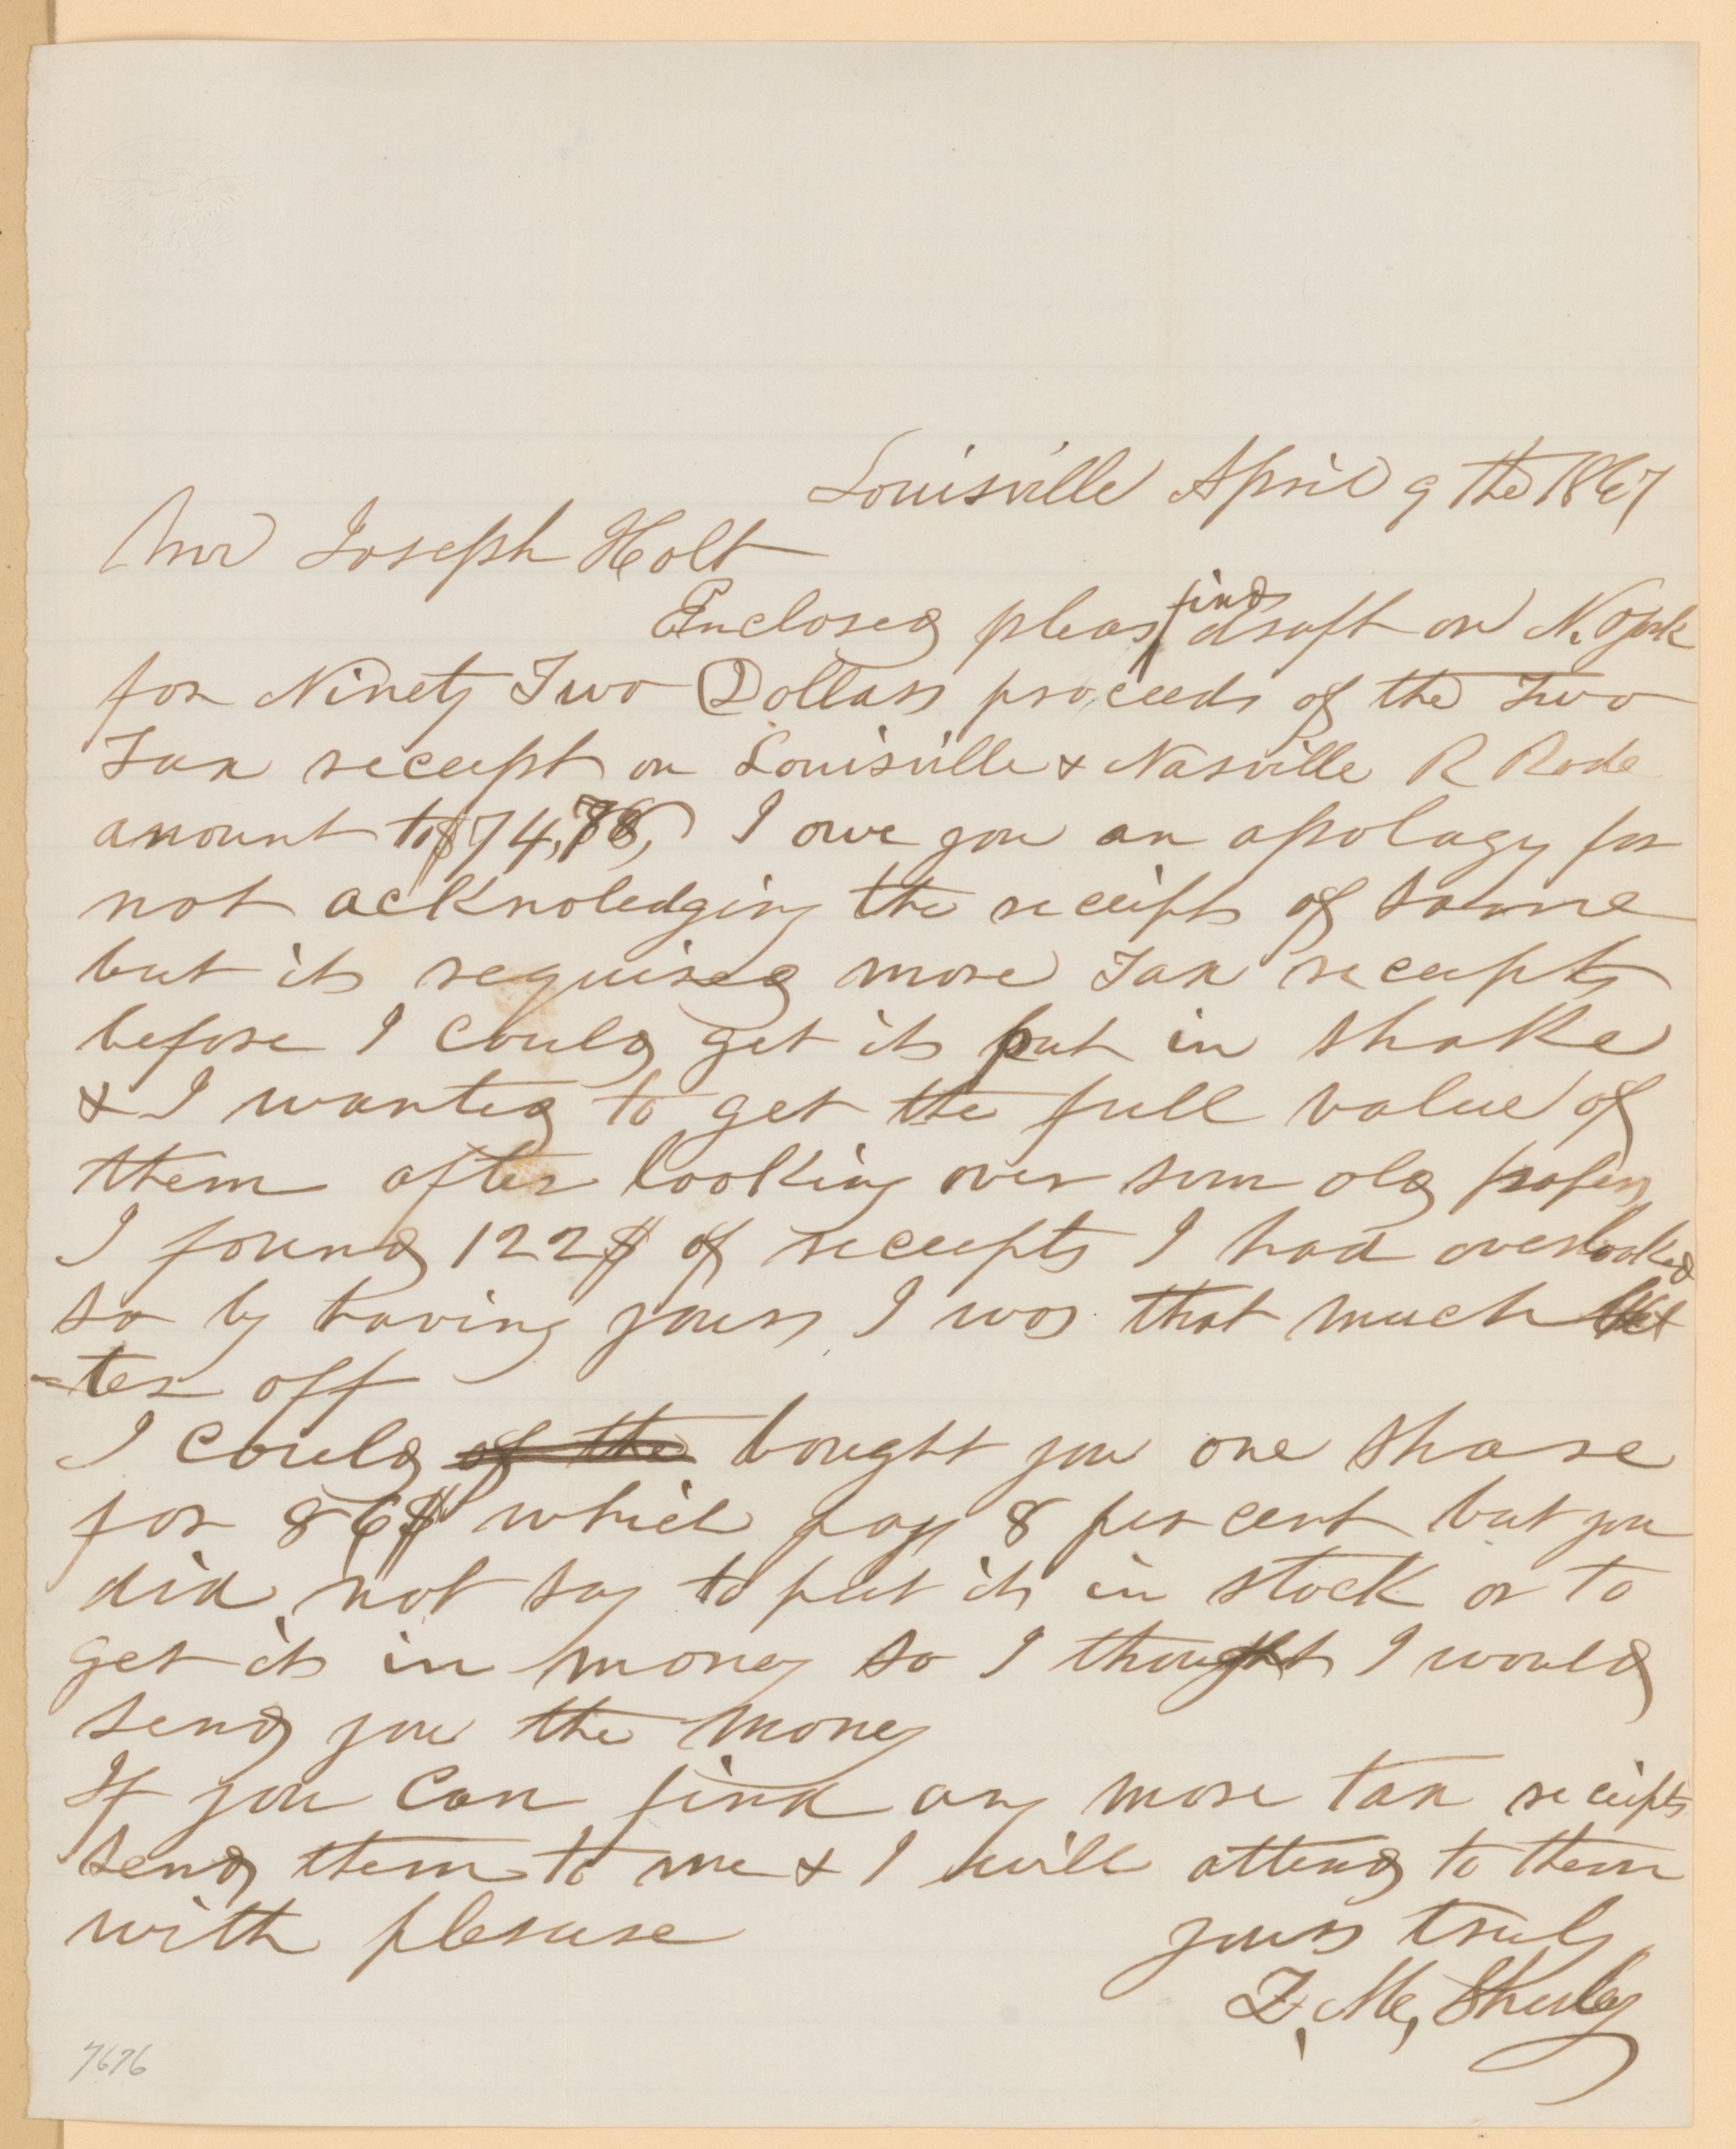 Louisville April 9 the 1867
Mr Joseph Holt
Enclosed pleas find draft on N. York
for Ninety Two Dollars proceeds of the Two
Tax receipt on Louisville & Nasville R Rode
amount to $74,78, I owe you an apology for
not acknoledging the receipts of same
but it required more Tax receipts
before I could get it put in shake
& I wanted to get the full value of
them after looking over som old papers
I found 122$ of receipts I had overlooked
so by having yours I was that much bet
-ter off
I could of the bought you one share
for 86$ which pays 8 per cent but you
did not say to put it in stock or to
get it in money so I thought I would
send you the money
If you can find any more tax receipts
send them to me & I will attend to them
with plesure
yours truly
Z. M, Sherley
7676